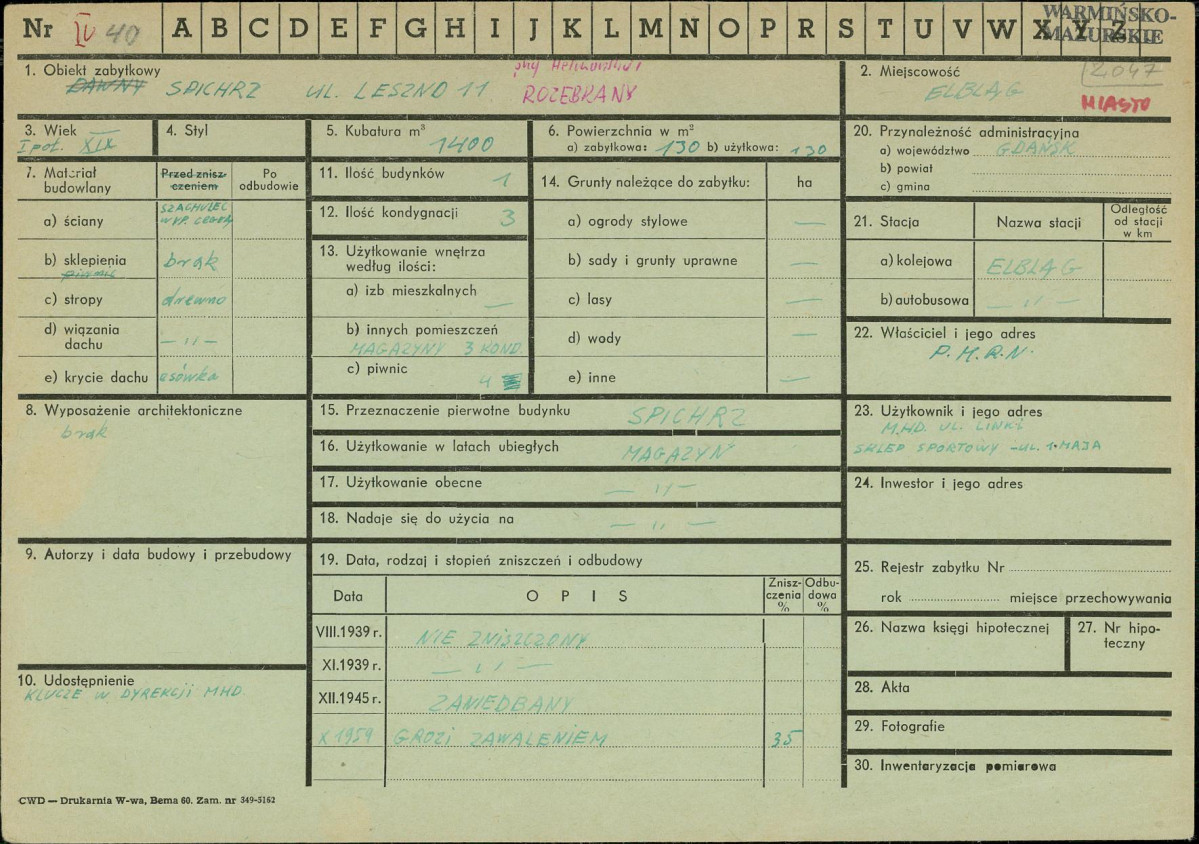 Nr IV 40 A B C D E F G H I J K L M N O P R S T U V W X Y Z
WARMIŃSKO-
MAZURSKIE
1. Obiekt zabytkowy
DAWNY SPICHRZ UL. LESZNO 11
ROZEBRANY
2. Miejscowość
2047
ELBLĄG
MIASTO
3. Wiek
I poł. XIX
4. Styl
5. Kubatura m³
1400
6. Powierzchnia w m²
a) zabytkowa: 130 b) użytkowa: 130
7. Materiał budowlany
Przed znisz-
czeniem
Po
odbudowie
a) ściany
SZACHULEC
WYP. CEGŁĄ
b) sklepienia brak
piwnic
c) stropy drewno
d) wiązania
dachu — " —
e) krycie dachu esówka
8. Wyposażenie architektoniczne
brak
9. Autorzy i data budowy i przebudowy
10. Udostępnienie
KLUCZE W DYREKCJI MHD.
11. Ilość budynków 1
12. Ilość kondygnacji 3
13. Użytkowanie wnętrza
według ilości:
a) izb mieszkalnych —
b) innych pomieszczeń
MAGAZYNY 3 KOND.
c) piwnic 4
14. Grunty należące do zabytku: ha
a) ogrody stylowe —
b) sady i grunty uprawne —
c) lasy —
d) wody —
e) inne —
15. Przeznaczenie pierwotne budynku SPICHRZ
16. Użytkowanie w latach ubiegłych MAGAZYN
17. Użytkowanie obecne — " —
18. Nadaje się do użycia na — " —
19. Data, rodzaj i stopień zniszczeń i odbudowy
Data O P I S Znisz-
czenia
% Odbu-
dowa
%
VIII.1939 r. NIE ZNISZCZONY
XI.1939 r. — " —
XII.1945 r. ZANIEDBANY
X 1959 GROZI ZAWALENIEM 35
20. Przynależność administracyjna
a) województwo GDAŃSK
b) powiat
c) gmina
21. Stacja Nazwa stacji Odległość
od stacji
w km
a) kolejowa ELBLĄG
b) autobusowa — " —
22. Właściciel i jego adres
P.M.R.N.
23. Użytkownik i jego adres
M.HD. UL. LINKI
SKLEP SPORTOWY - UL. 1. MAJA
24. Inwestor i jego adres
25. Rejestr zabytku Nr
rok miejsce przechowywania
26. Nazwa księgi hipotecznej
27. Nr hipo-
teczny
28. Akta
29. Fotografie
30. Inwentaryzacja pomiarowa
CWD — Drukarnia W-wa, Bema 60. Zam. nr 349-5162